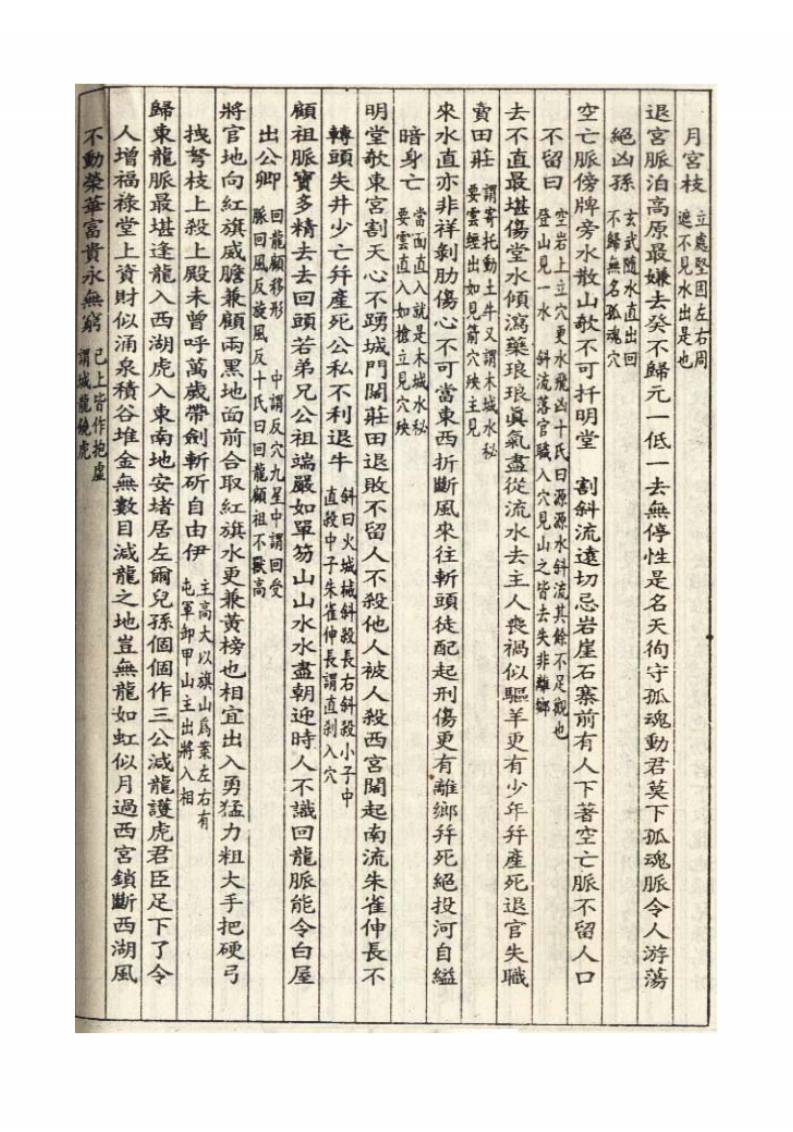 月宮枝 立處堅固左右周遮不見水出是也
退宮脈泊高原最嫌去癸不歸元一低一去無停性是名天徇守孤魂動君莫下孤魂脈令人游蕩
絕凶孫 玄武隨水直出回不歸無名孤魂穴
空亡脈傍牌旁水散山欹不可扦明堂 割斜流遠切忌岩崖石寨前有人下著空亡脈不留人口
不留曰 空岩上立穴更水飛凶十氏曰源源水斜流其餘不足觀也登山見一水 斜流落官職入穴見山之皆去失非離鄉
去不直最堪傷堂水傾瀉藥琅琅眞氣盡從流水去主人喪禍似驅羊更有少年幷產死退官失職
賣田莊 謂寄托動土牛又謂木城水秘要雲經出如見箭穴殃主見
來水直亦非祥剝肋傷心不可當東西折斷風來往斬頭徒配起刑傷更有離鄉幷死絕投河自縊
暗身亡 當面直入就是木城水秘要雲直入如槍立見穴殃
明堂欹東宮割天心不踴城門闊莊田退敗不留人不殺他人被人殺西宮闊起南流朱雀伸長不
轉頭失井少亡幷產死公私不利退牛 斜曰火城械斜殺長右斜殺小子中直殺中子朱雀伸長謂直刹入穴
顧祖脈寶多精去去回頭若弟兄公祖端嚴如單笏山山水水盡朝迎時人不識回龍脈能令白屋
出公卿 回龍顧移形 中謂反穴九星中謂回受脈回風反旋風反十氏曰回龍顧祖不厭高
將官地向紅旗威膽兼顧兩黑地面前合取紅旗水更兼黃榜也相宜出入勇猛力粗大手把硬弓
拽弩枝上殺上殿未曾呼萬歲帶劍斬斫自由伊 主高大以旗山爲案左右有屯軍卸甲山主出將入相
歸東龍脈最堪逢龍入西湖虎入東南地安堵居左爾兒孫個個作三公減龍護虎君臣足下了令
人增福祿堂上資財似涌泉積谷堆金無數目減龍之地豈無龍如虹似月過西宮鎖斷西湖風
不動榮華富貴永無窮 已上皆作抱虛謂城龍饒虎